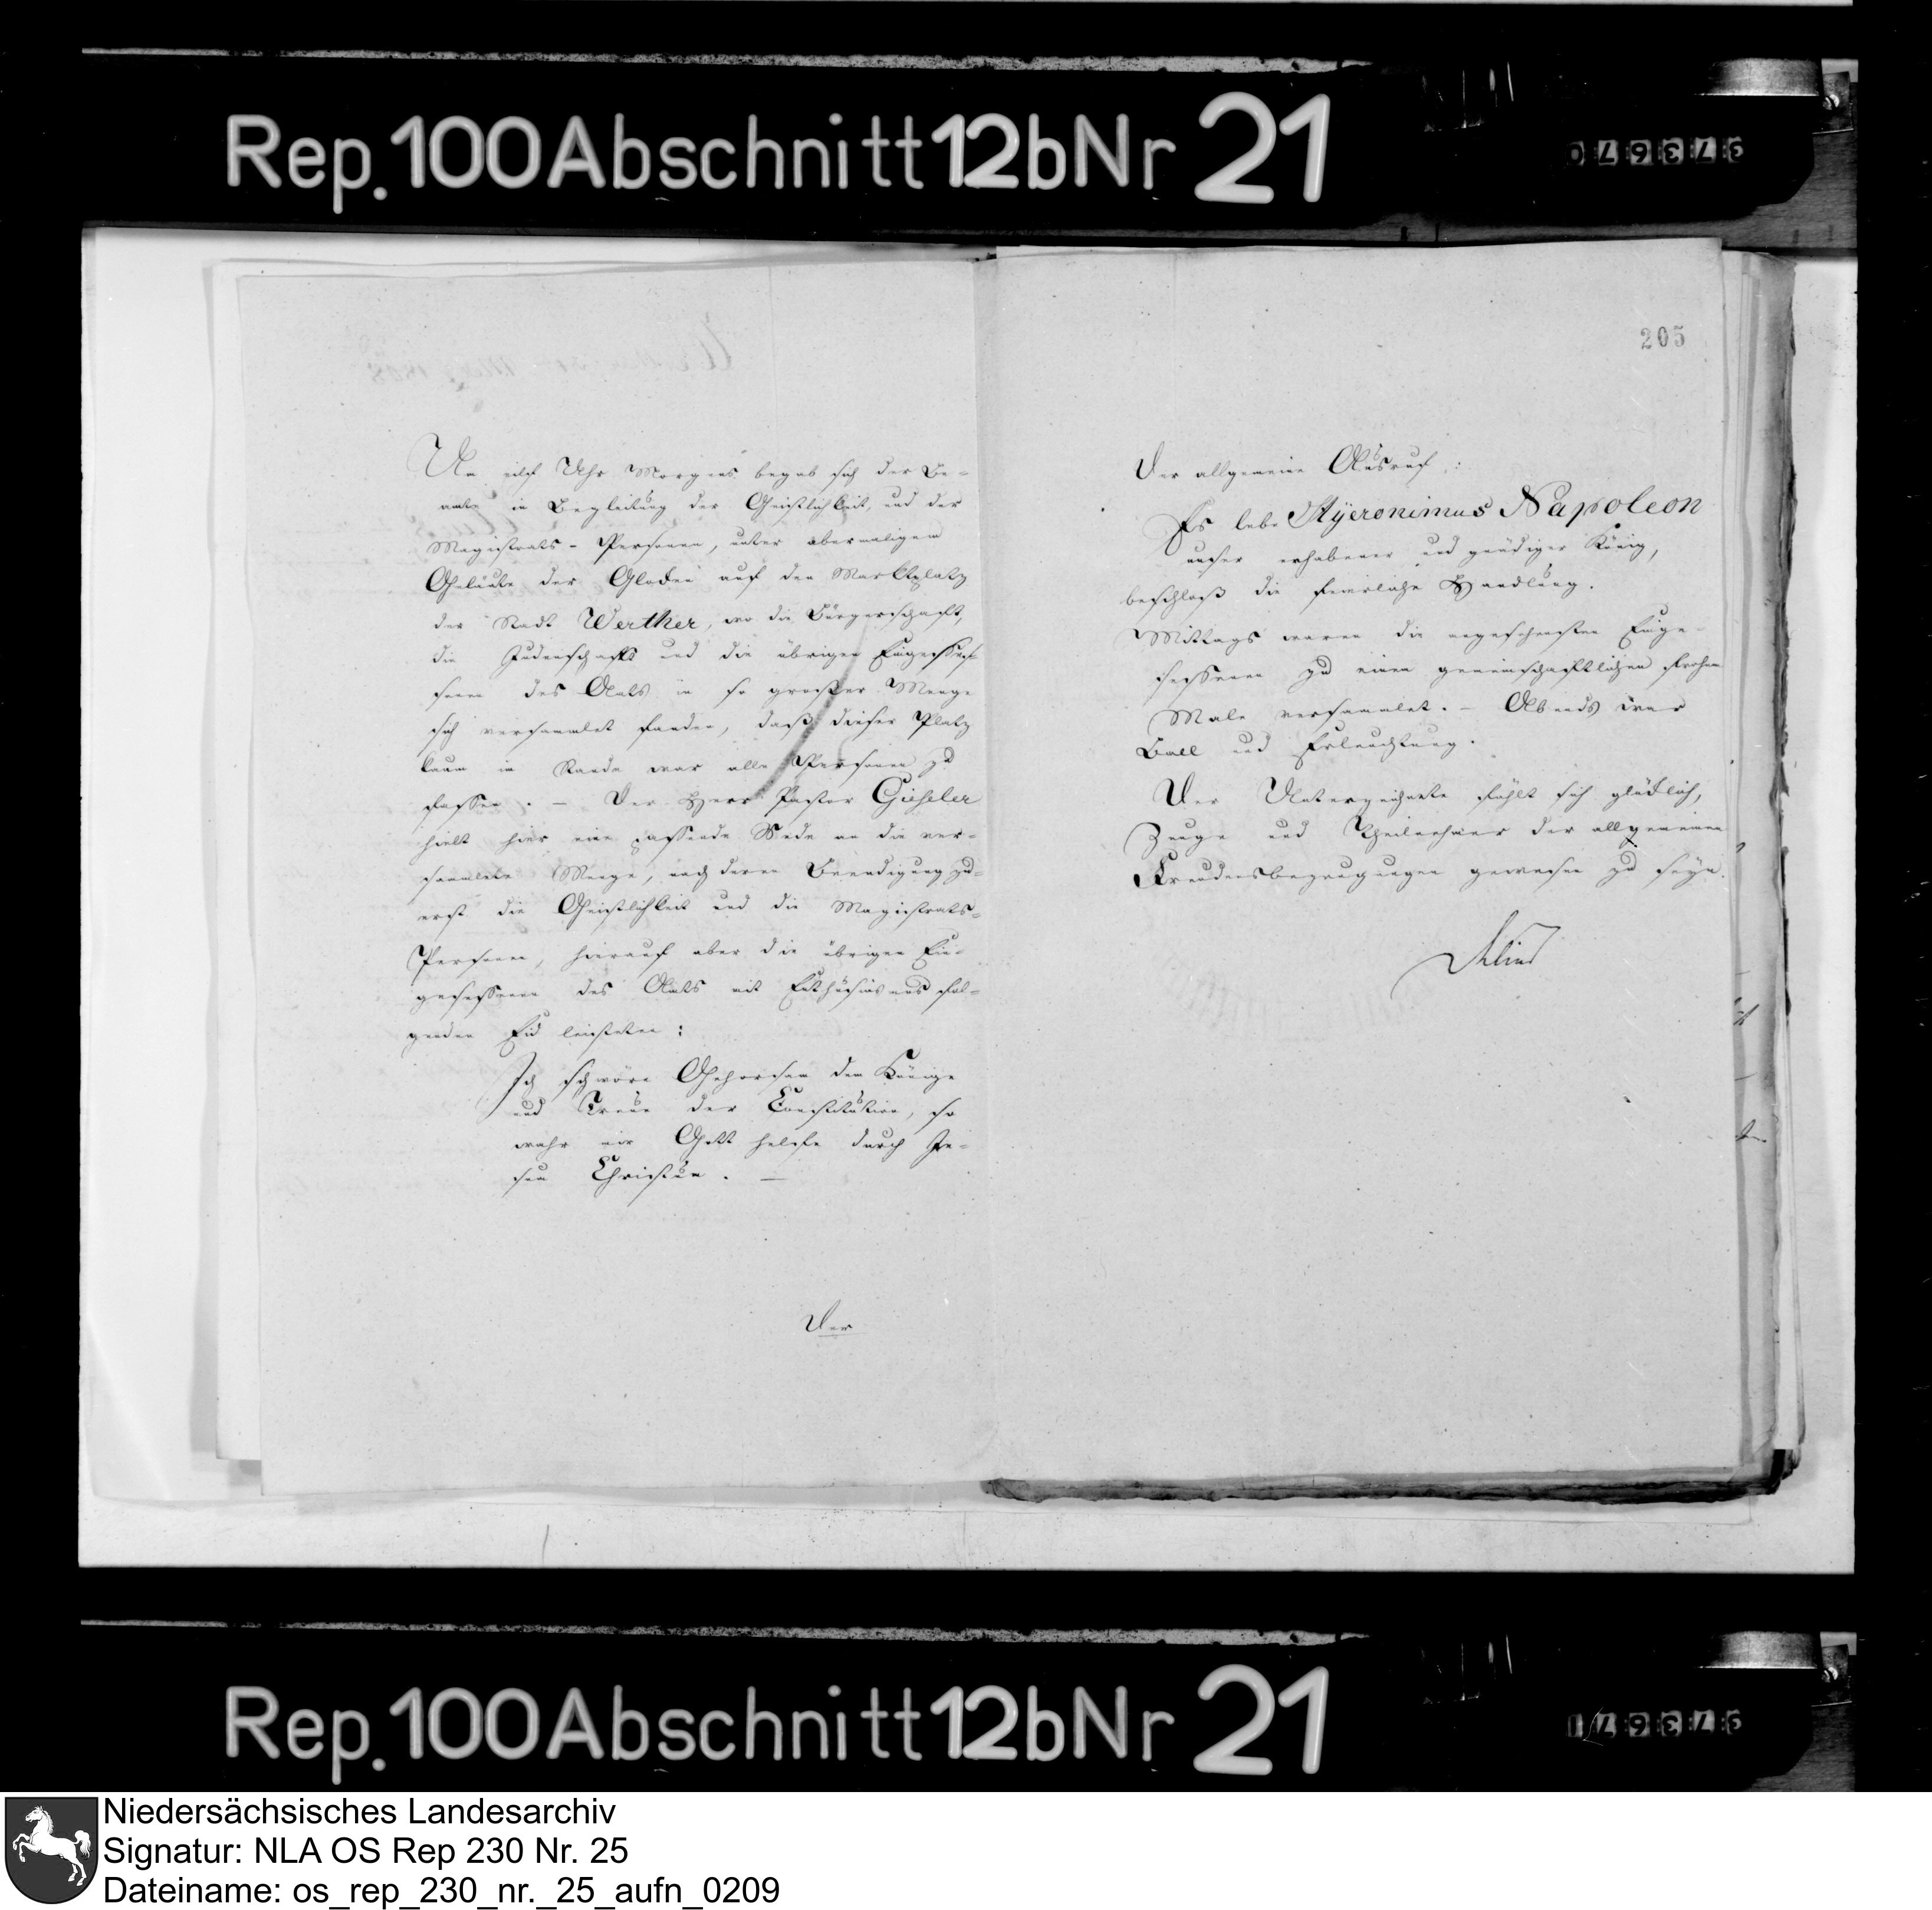 Rep. 100 Abschnitt 12b Nr 21
373670
Um eilf Uhr Morgens begab sich der Be-
amte in Begleitung der Geistlichkeit, und der
Magistrats-Personen, unter abermaligem
Geläute der Glocken auf den Marktplatz
der Stadt Werther, wo die Bürgerschaft,
die Judenschaft und die übrigen Eingeses-
senen des Amts in so großer Menge
sich versammlet fanden, daß dieser Platz
kaum im Stande war alle Personen zu
fassen. – Der Herr Pastor Gieseler
hielt hier eine passende Rede an die ver-
sammlete Menge, nach deren Beendigung zu-
erst die Geistlichkeit und die Magistrats-
Personen, hierauf aber die übrigen Ein-
gesessenen des Amts mit Enthusiasmus fol-
genden Eid leisteten:
Ich schwöre Gehorsam dem Könige
und Treue der Constitution, so
wahr mir Gott helfe durch Je-
sum Christum. –
Der
205
Der allgemeine Ausruf:
Es lebe Hÿeronimus Napoleon
unser erhabener und gnädiger König,
beschloß die feierliche Handlung.
Mittags waren die angesehensten Einge-
sessenen zu einem gemeinschaftlichen frohen
Male versammlet. – Abends war
Ball und Erleuchtung.
Der Unterzeichnete fühlt sich glücklich,
Zeuge und Theilnehmer der allgemeinen
Freudensbezeugungen gewesen zu seyn.
Rep. 100 Abschnitt 12b Nr 21
373671
Niedersächsisches Landesarchiv
Signatur: NLA OS Rep 230 Nr. 25
Dateiname: os_rep_230_nr._25_aufn_0209